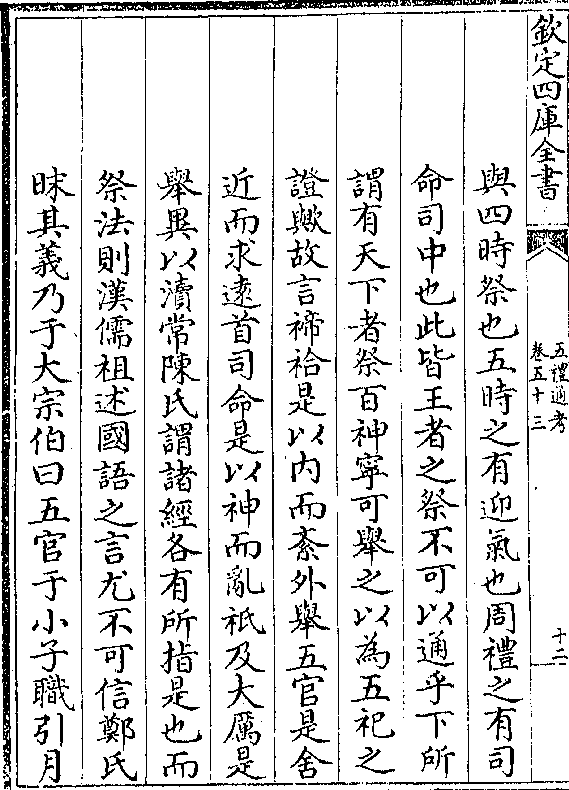 欽定四庫全書
五禮通考
卷五十三
十二
與四時祭也五時之有迎氣也周禮之有司
命司中也此皆王者之祭不可以通乎下所
謂有天下者祭百神寧可舉之以為五祀之
證歟故言禘祫是以内而紊外舉五官是舍
近而求逺首司命是以神而亂祇及大厲是
舉異以瀆常陳氏謂諸經各有所指是也而
祭法則漢儒祖述國語之言尤不可信鄭氏
昧其義乃于大宗伯曰五官于小子職引月